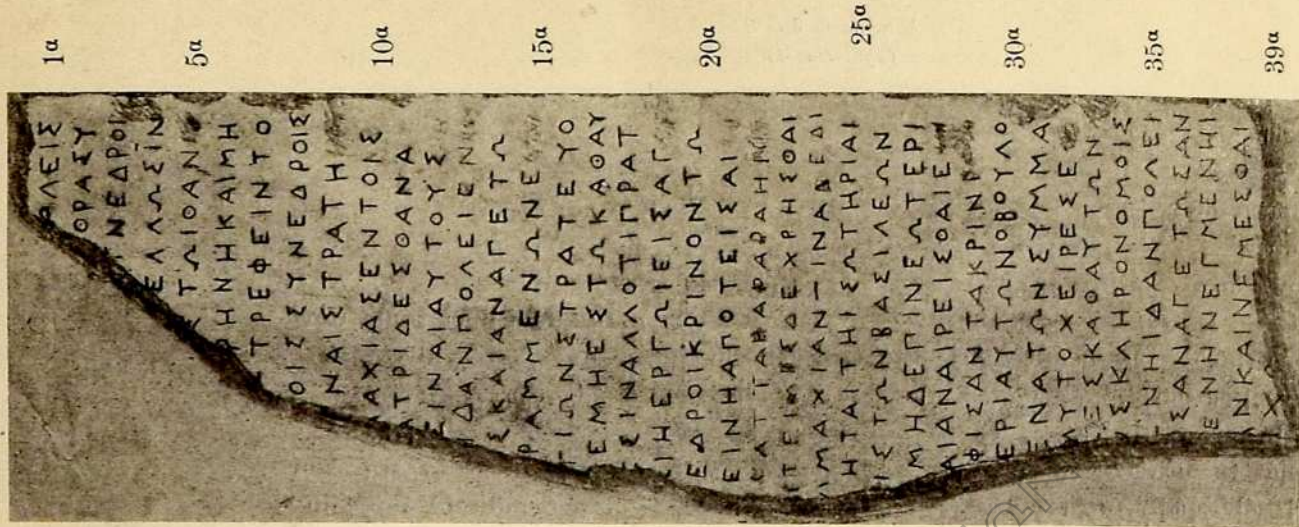 1α ΟΛΕΙΣ
ΟΡΑΣΥ
ΥΝΕΔΡΟΙ
ΕΛΛΩΣΙΝ
5α ΕΤΩΙΟΑΝ
ΡΗΝΗΚΑΙΜΗ
ΣΤΡΕΦΕΙΝΤΟ
ΟΙΣΣΥΝΕΔΡΟΙΣ
ΝΑΙΣΤΡΑΤΗ
10α ΑΧΙΑΣΕΝΤΟΙΣ
ΑΤΡΙΔΕΣΘΑΝΑ
ΕΙΝΑΙΑΥΤΟΥΣ
ΙΔΑΝΠΟΛΕΙΕΝ
ΣΚΑΙΑΝΑΓΕΤΩ
15α ΡΑΜΜΕΝΩΝΕ
ΓΙΩΝΣΤΡΑΤΕΥΟ
ΕΜΗΕΣΤΩΚΑΘΑΥ
ΣΙΝΑΛΛΟΤΙΠΡΑΤ
ΙΗΕΡΓΩΙΕΙΣΑΓ
20α ΕΔΡΟΙΚΡΙΝΟΝΤΩ
ΕΙΝΗΑΠΟΤΕΙΣΑΙ
ΙΤΕΙΜΙΣΔΕΧΡΗΣΘΑΙ
ΙΜΑΧΙΑΝ-ΙΝΑΔΕΔΙ
25α ΗΤΑΙΤΗΙΣΩΤΗΡΙΑΙ
ΙΣΤΩΝΒΑΣΙΛΕΩΝ
ΜΗΔΕΠΙΝΕΩΤΕΡΙ
ΑΙΑΝΑΙΡΕΙΣΘΑΙΕ
ΦΙΣΑΝΤΑΚΡΙΝΡ
30α ΕΡΙΑΥΤΩΝΟΒΟΥΛΟ
ΕΝΑΤΩΝΣΥΜΜΑ
ΑΥΤΟΧΕΙΡΕΣΕ
ΕΣΚΑΘΑΥΤΩΝ
ΣΚΛΗΡΟΝΟΜΟΙΣ
35α ΝΗΙΔΑΝΠΟΛΕΙ
ΣΑΝΑΓΕΤΩΣΑΝ
ΕΝΗΝΕΓΜΕΝΗΙ
ΝΚΑΙΝΕΜΕΣΘΑΙ
39α Χ Ω